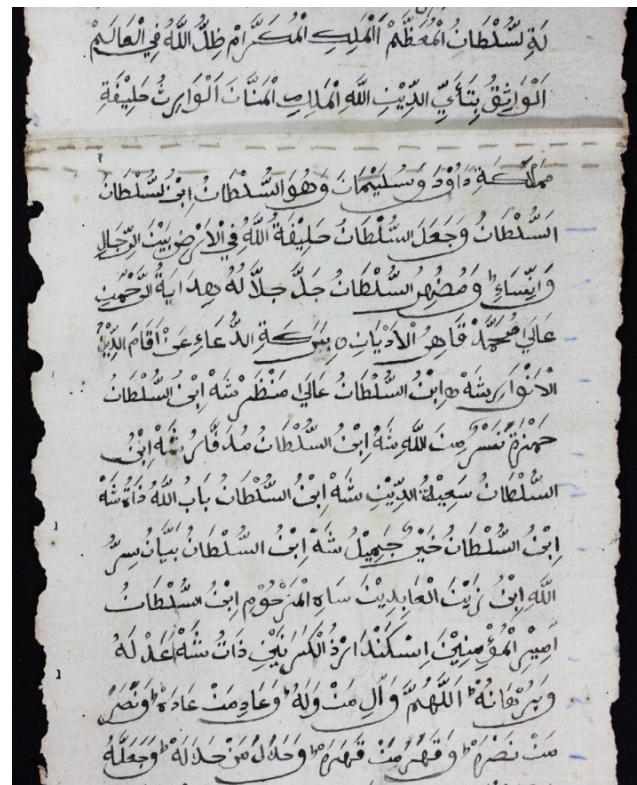 لَةِ لسُّلْطَانُ الْمُعَظَّمْ اَلْمَلِكِ الْمُكَرَّامْ ظِلُّ اللَّهُ فِي الْعَالَمْ
اَلْوَاثِقُ بِتَأَيِّ الدِّيْنِ اللَّهِ الْمَلِكِ الْمَنَّانَ اَلْوَارِثُ خَلِيْفَةِ
مَمْلَكَةِ دَاوُدَ وَسُلَيْمَانَ وَهُوَ السُّلْطَانُ اِبْنُ لسُّلْطَانُ
السُّلْطَانُ وَجَعَلَ السُّلْطَانُ خَلِيْفَةُ اللَّهُ فِي الْاَرْضِ بَيْنَ الرِّجَالِ
وَانِّسَاءِ وَمُضْهِرُ السُّلْطَانُ جَلَّ جَلَّا لَهُ هِدَايَةُ الرَّحْمٰنِ
عَالَى مُحَمَّدْ قَاهِرُ الْاَدْيَانِ ه بِبَرَكَةِ الدُّعَاءِ عَنْ اَقَامَ الدِّيْنُ
الْاَنْوَارِ شَهْ ه اِبْنُ السُّلْطَانُ عَالَى مَنْظَرْ شَهْ اِبْنُ السُّلْطَانُ
حَمْزَةْ نَسْرٌ مِنَ اللَّهِ شَهُ اِبْنُ السُّلْطَانُ مُدَفَّارْ شَهْ اِبْنُ
السُّلْطَانُ سَعِيْدُ الدِّيْنِ شَهْ اِبْنُ السُّلْطَانُ بَابُ اللَّهُ ذَاةْ شَهْ
اِبْنُ السُّلْطَانُ خَيْرٌ جَمِيْلُ شَهْ اِبْنُ السُّلْطَانُ بَيَّانُ سِرُّ
اللَّهِ اِبْنُ زَيْنَ الْعَابِدِيْنَ سَاهِ الْمَرْحُوْمِ اِبْنُ السُّلْطَانُ
اَمِيْرِ الْمُؤْمِنِيْنَ اِسْكَنْدَارْ ذُالْكَرْنَيْنِ ذَاتُ شَهْ عَدْ لَهُ
وَبُرْهَانَهُ اَللَّهُمَّ وَالِ مَنْ وَلَهُ وَعَادِ مَنْ عَادَهْ وَنْصُرْ
مَنْ نَصَرَهْ وَقَهَرْ مَنْ قَهَرَهْ وَخَذُلْ مَنْ خَذَلَهْ وَجَعَلَهُ